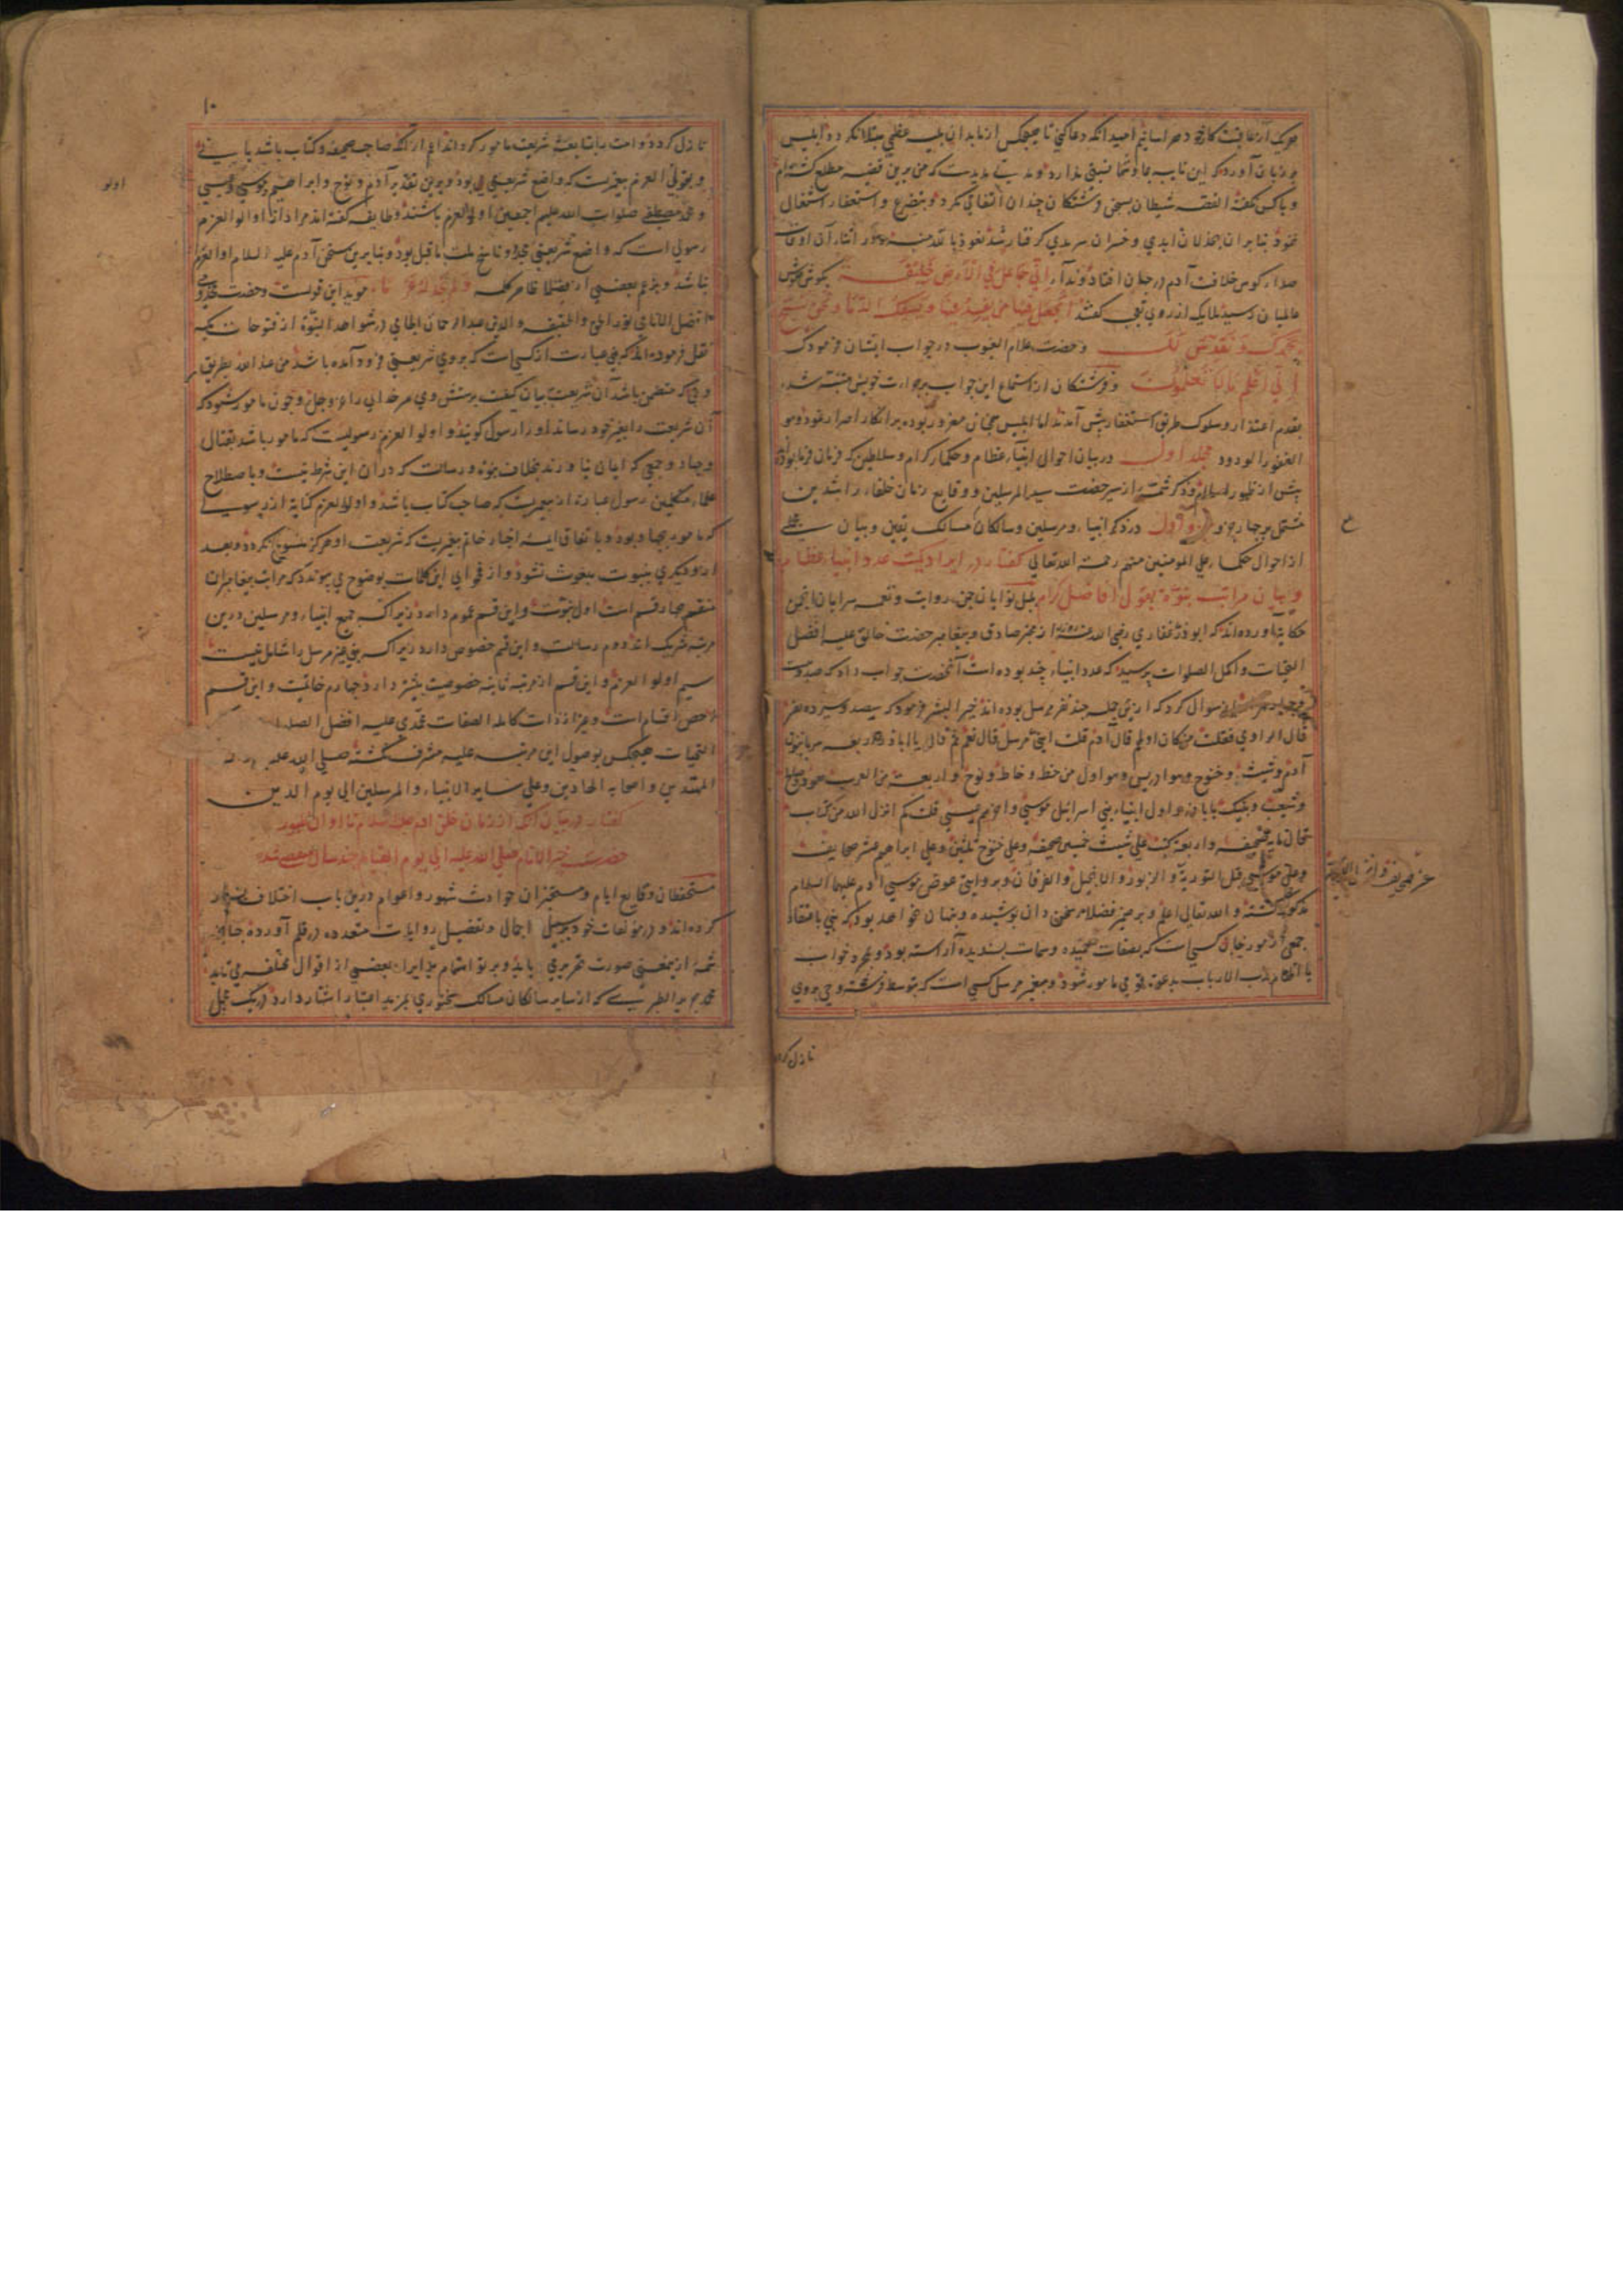 هریک از عاقبت کار خود هراسانیم امید آنکه دعا کنی تا هیچکس از ما بدان بلیه عظمی مبتلا نکردد ابلیس
بر زبان آورد که این نایبه بجا و شما نسبتی ندارد و مدتی مدیدست که من برین قضیه مطلع کشته‌ام
و با کس نکفته القصه شیطان بسخن فرشتکان چندان التفاتی نکرد و بتضرع و استغفار اشتغال
ننمود بنابران بخذلان ابدی و خسران سرمدی کرفتار شد نعوذ بالله منه و در اثنای آن اوقات
صداء کوس خلافت آدم در جهان افتاد و نداء اِنّی جَاعِلٌ فِی الاَرضِ خَلِیفَة بکوش هوش
عالمیان رسید ملایک از روی تعجب کفتند اَتَجعَلُ فِیهَا مَن یُفسِدُ فِیهَا وَیَسفِکُ الدِّمَا وَنَحنُ نُسَبِّحُ
بِحَمدِکَ وَ نُقَدِّسُ لَکَ و حضرت علام الغیوب در جواب ایشان فرمود که
اِنّی اَعلَمُ مَا لَا تَعلَمُونَ و فرشتکان از استماع این جواب بر جرات خویش متنبه شده
بقدم اعتذار و سلوک طریق استغفار پیش آمدند اما ابلیس همچنان مغرور بوده بر انکار اصرار نمود وهو
الغفور الودود مجلد اول در بیان احوال انبیاء عظام و حکماء کرام و سلاطین که فرمان فرما بوده‌اند
پیش از ظهور اسلام و ذکر شمه از سیر حضرت سید المرسلین و وقایع زمان خلفاء راشدین
مشتمل بر چهار جزو جزو اول در ذکر انبیاء و مرسلین و سالکان مسالک یقین و بیان شطری
از احوال حکماء علی المومنین منهم رحمة الله تعالی کفتار در ایراد کمیت عدد انبیاء عظام
و بیان مراتب نبوة بقول افاضل کرام بلبل نوایان چمن روایت و نغمه سرایان انجمن
حکایت آورده‌اند که ابوذر غفاری رضی الله عنه از مخبر صادق و پیغامبر حضرت خالق علیه افضل
التحیات و اکمل الصلوات پرسید که عدد انبیاء چند بوده است آنحضرت جواب داد که صد و بیست
و چهار هزار باز سوال کرد که از ین جمله چند نفر مرسل بوده‌اند خیر البشر فرمود که سیصد و سیزده نفر
قال الراوی فقلت من کان اولهم قال آدم قلت انبی مرسل قال نعم ثم قال یا اباذر اربعه سریانیون
آدم و شیث و خنوخ وهو ادریس وهو اول من خط و خاط و نوح و اربعة من العرب هود و صالح
و شعیب و نبیک یا اباذر و اول انبیاء بنی اسرائیل موسی و آخرهم عیسی قلت کم انزل الله من کتاب
قال مایه صحیفه و اربعة کتب علی شیث خمسین صحیفه و علی خنوخ ثلثین و علی ابراهیم عشر صحایف
و علی موسی قبل التوریة و الزبور و الانجیل و الفرقان و بروایتی عوض موسی آدم علیهما السلام
مذکور کشته و الله تعالی اعلم و بر ضمیر فضلاء سخن دان پوشیده و پنهان نخواهد بود که نبی باعتقاد
جمعی از مورخان کسیست که بصفات حمیده و سمات پسندیده آراسته بود و بمجرد خواب
یا الهام رب الارباب بدعوة قومی مامور شود و پیغمبر مرسل کسی است که بتوسط فرشته وحی بروی
نازل کرد
ع
۱۰
نازل کردد و امت باتباعش شریعت مامور کردند اعم از آنکه صاحب صحیفه و کتاب باشد یا نی
و بقولی اولو العزم پیغمبریست که واضع شریعتی بود و برین تقدیر آدم و نوح و ابراهیم و موسی و عیسی
و محمد مصطفی صلوات الله علیهم اجمعین اولو العزم باشند و طایفه کفته‌اند مراد از اولو العزم
رسولی است که واضع شریعتی مجدد و ناسخ ملت ما قبل بود و بنابرین سخن آدم علیه السلام اولو العزم
نباشد و بزعم بعضی از فضلا ظاهر کلمه وَلَم نَجِد لَهُ عَزمًا موید این قولست و حضرت مخدومی
افضل الانامی نور الحق و الحقیقه و الدین عبد الرحمان الجامی در شواهد النبوة از فتوحات مکیه
نقل فرموده‌اند که نبی عبارت از کسی است که بروی شریعتی فرود آمده باشد من عند الله بطریق
وحی که متضمن باشد آن شریعت بیان کیفیت پرستش وی مر خدای را عز و جل و چون مامور شود که
آن شریعت را بغیر خود رساند او را رسول کویند و اولو العزم رسولیست که مامور باشد بقتال
و جهاد و جمعی که ایمان نیاورند بخلاف نبوة و رسالت که در آن این شرط نیست و باصطلاح
علماء متکلمین رسول عبارت از پیغمبریست که صاحب کتاب باشد و اولو العزم کنایة از رسولی
که مامور بجهاد بود و باتفاق ایمه اخبار خاتم پیغمبریست که شریعت او هرکز منسوخ نکردد و بعد
از و دیکری بنبوت مبعوث نشود و از فحوای این کلمات بوضوح می پیوندد که مراتب پیغامبران
منقسم بچهار قسم است اول نبوت و این قسم عموم دارد زیراکه جمیع انبیاء و مرسلین درین
مرتبه شریک‌اند دوم رسالت و این قسم خصوص دارد زیراکه نبی غیر مرسل را شامل نیست
سیم اولو العزم و این قسم از مرتبه ثانیه خصوصیت بیشتر دارد چهارم خاتمیت و این قسم
اخص اقسام است و غیر از ذات کامله الصفات محمدی علیه افضل الصلوا
التحیات هیچکس بوصول این مرتبه علیه مشرف نکشته صلی الله علیه
المهتدین و اصحابه الهادین و علی سایر الانبیاء و المرسلین الی یوم الدین
کفتار در بیان آنکه از زمان خلق آدم علیه السلام تا اوان ظهور
حضرت خیر الانام صلی الله علیه الی یوم القیام چند سال منقضی شد
مستحفظان وقایع ایام و مستخبران حوادث شهور و اعوام درین باب اختلاف بسیار
کرده‌اند و در مولفات خود بر سبیل اجمال و تفصیل روایات متعدده در قلم آورده چنانچه
شمه از ین معنی صورت تحریر می یابد و پرتو اهتمام بر ایراد بعضی از اقوال مختلفه می تابد
محمد جریر الطبری که از سایر سالکان مسالک سخنوری بمزید اعتبار اشتهار دارد در یک محل
اولو